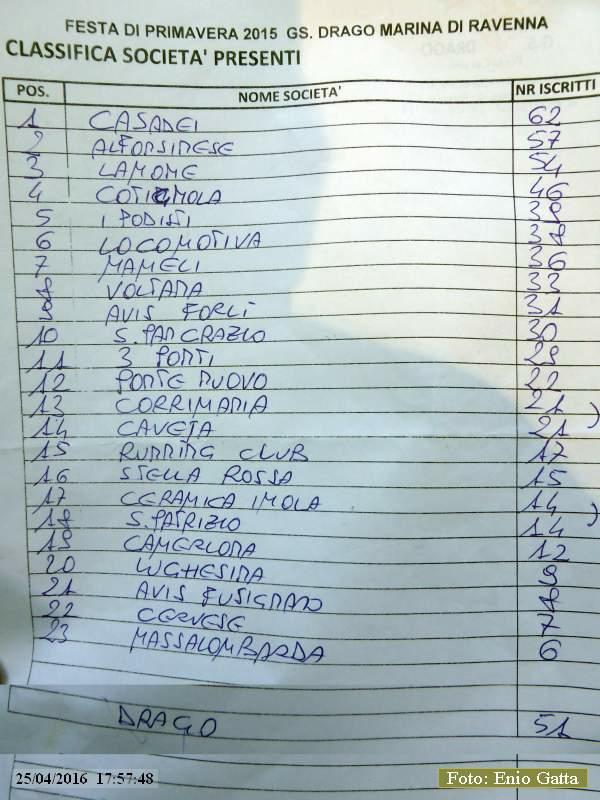 FESTA DI PRIMAVERA 2015 GS. DRAGO MARINA DI RAVENNA
CLASSIFICA SOCIETA' PRESENTI
POS. NOME SOCIETA' NR ISCRITTI
1 CASADEI 62
2 ALFONSINESE 57
3 LAMONE 54
4 COTIGNOLA 46
5 I PODISTI 39
6 LOCOMOTIVA 38
7 MAMELI 36
8 VOLTANA 33
9 AVIS FORLÌ 31
10 S. PANCRAZIO 30
11 3 PONTI 29
12 PONTE NUOVO 22
13 CORRIMANIA 21 )
14 CAVEJA 21
15 RUNNING CLUB 17
16 STELLA ROSSA 15
17 CERAMICA IMOLA 14 )
18 S. PATRIZIO 14
19 CAMERLONA 12
20 LUGHESINA 9
21 AVIS FUSIGNANO 8
22 CERVESE 7
23 MASSALOMBARDA 6
DRAGO 51
25/04/2016 17:57:48 Foto: Enio Gatta